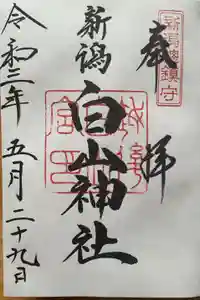 奉拝
新潟総鎮守
新潟
白山神社
令和三年 五月二十九日